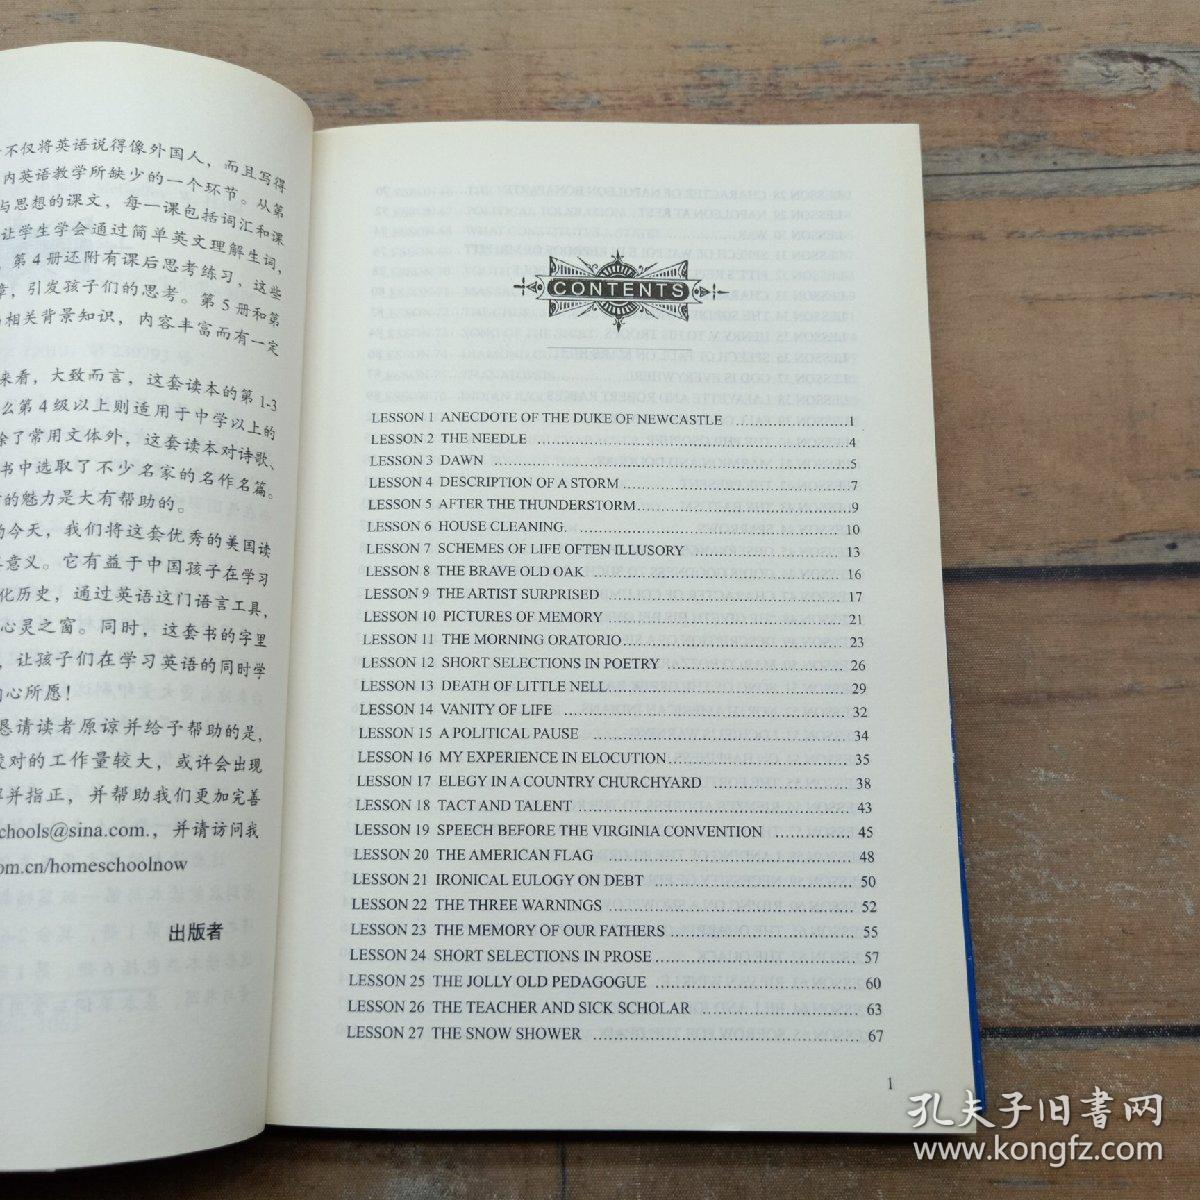 不仅将英语说得像外国人，而且写得
内英语教学所缺少的一个环节。从第
与思想的课文，每一课包括词汇和课
让学生学会通过简单英文理解生词，
第4册还附有课后思考练习，这些
章，引发孩子们的思考。第5册和第
相关背景知识，内容丰富而有一定
来看，大致而言，这套读本的第1-3
么第4级以上则适用于中学以上的
除了常用文体外，这套读本对诗歌、
书中选取了不少名家的名作名篇。
的魅力是大有帮助的。
今天，我们将这套优秀的美国读
意义。它有益于中国孩子在学习
化历史，通过英语这门语言工具，
心灵之窗。同时，这套书的字里
，让孩子们在学习英语的同时学
心所愿！
恳请读者原谅并给予帮助的是，
校对的工作量较大，或许会出现
并指正，并帮助我们更加完善
chools@sina.com.，并请访问我
om.cn/homeschoolnow
出版者
CONTENTS
LESSON 1 ANECDOTE OF THE DUKE OF NEWCASTLE ........ 1
LESSON 2 THE NEEDLE ........ 4
LESSON 3 DAWN ........ 5
LESSON 4 DESCRIPTION OF A STORM ........ 7
LESSON 5 AFTER THE THUNDERSTORM ........ 9
LESSON 6 HOUSE CLEANING. ........ 10
LESSON 7 SCHEMES OF LIFE OFTEN ILLUSORY ........ 13
LESSON 8 THE BRAVE OLD OAK ........ 16
LESSON 9 THE ARTIST SURPRISED ........ 17
LESSON 10 PICTURES OF MEMORY ........ 21
LESSON 11 THE MORNING ORATORIO ........ 23
LESSON 12 SHORT SELECTIONS IN POETRY ........ 26
LESSON 13 DEATH OF LITTLE NELL ........ 29
LESSON 14 VANITY OF LIFE ........ 32
LESSON 15 A POLITICAL PAUSE ........ 34
LESSON 16 MY EXPERIENCE IN ELOCUTION ........ 35
LESSON 17 ELEGY IN A COUNTRY CHURCHYARD ........ 38
LESSON 18 TACT AND TALENT ........ 43
LESSON 19 SPEECH BEFORE THE VIRGINIA CONVENTION ........ 45
LESSON 20 THE AMERICAN FLAG ........ 48
LESSON 21 IRONICAL EULOGY ON DEBT ........ 50
LESSON 22 THE THREE WARNINGS ........ 52
LESSON 23 THE MEMORY OF OUR FATHERS ........ 55
LESSON 24 SHORT SELECTIONS IN PROSE ........ 57
LESSON 25 THE JOLLY OLD PEDAGOGUE ........ 60
LESSON 26 THE TEACHER AND SICK SCHOLAR ........ 63
LESSON 27 THE SNOW SHOWER ........ 67
1
孔夫子旧书网
www.kongfz.com